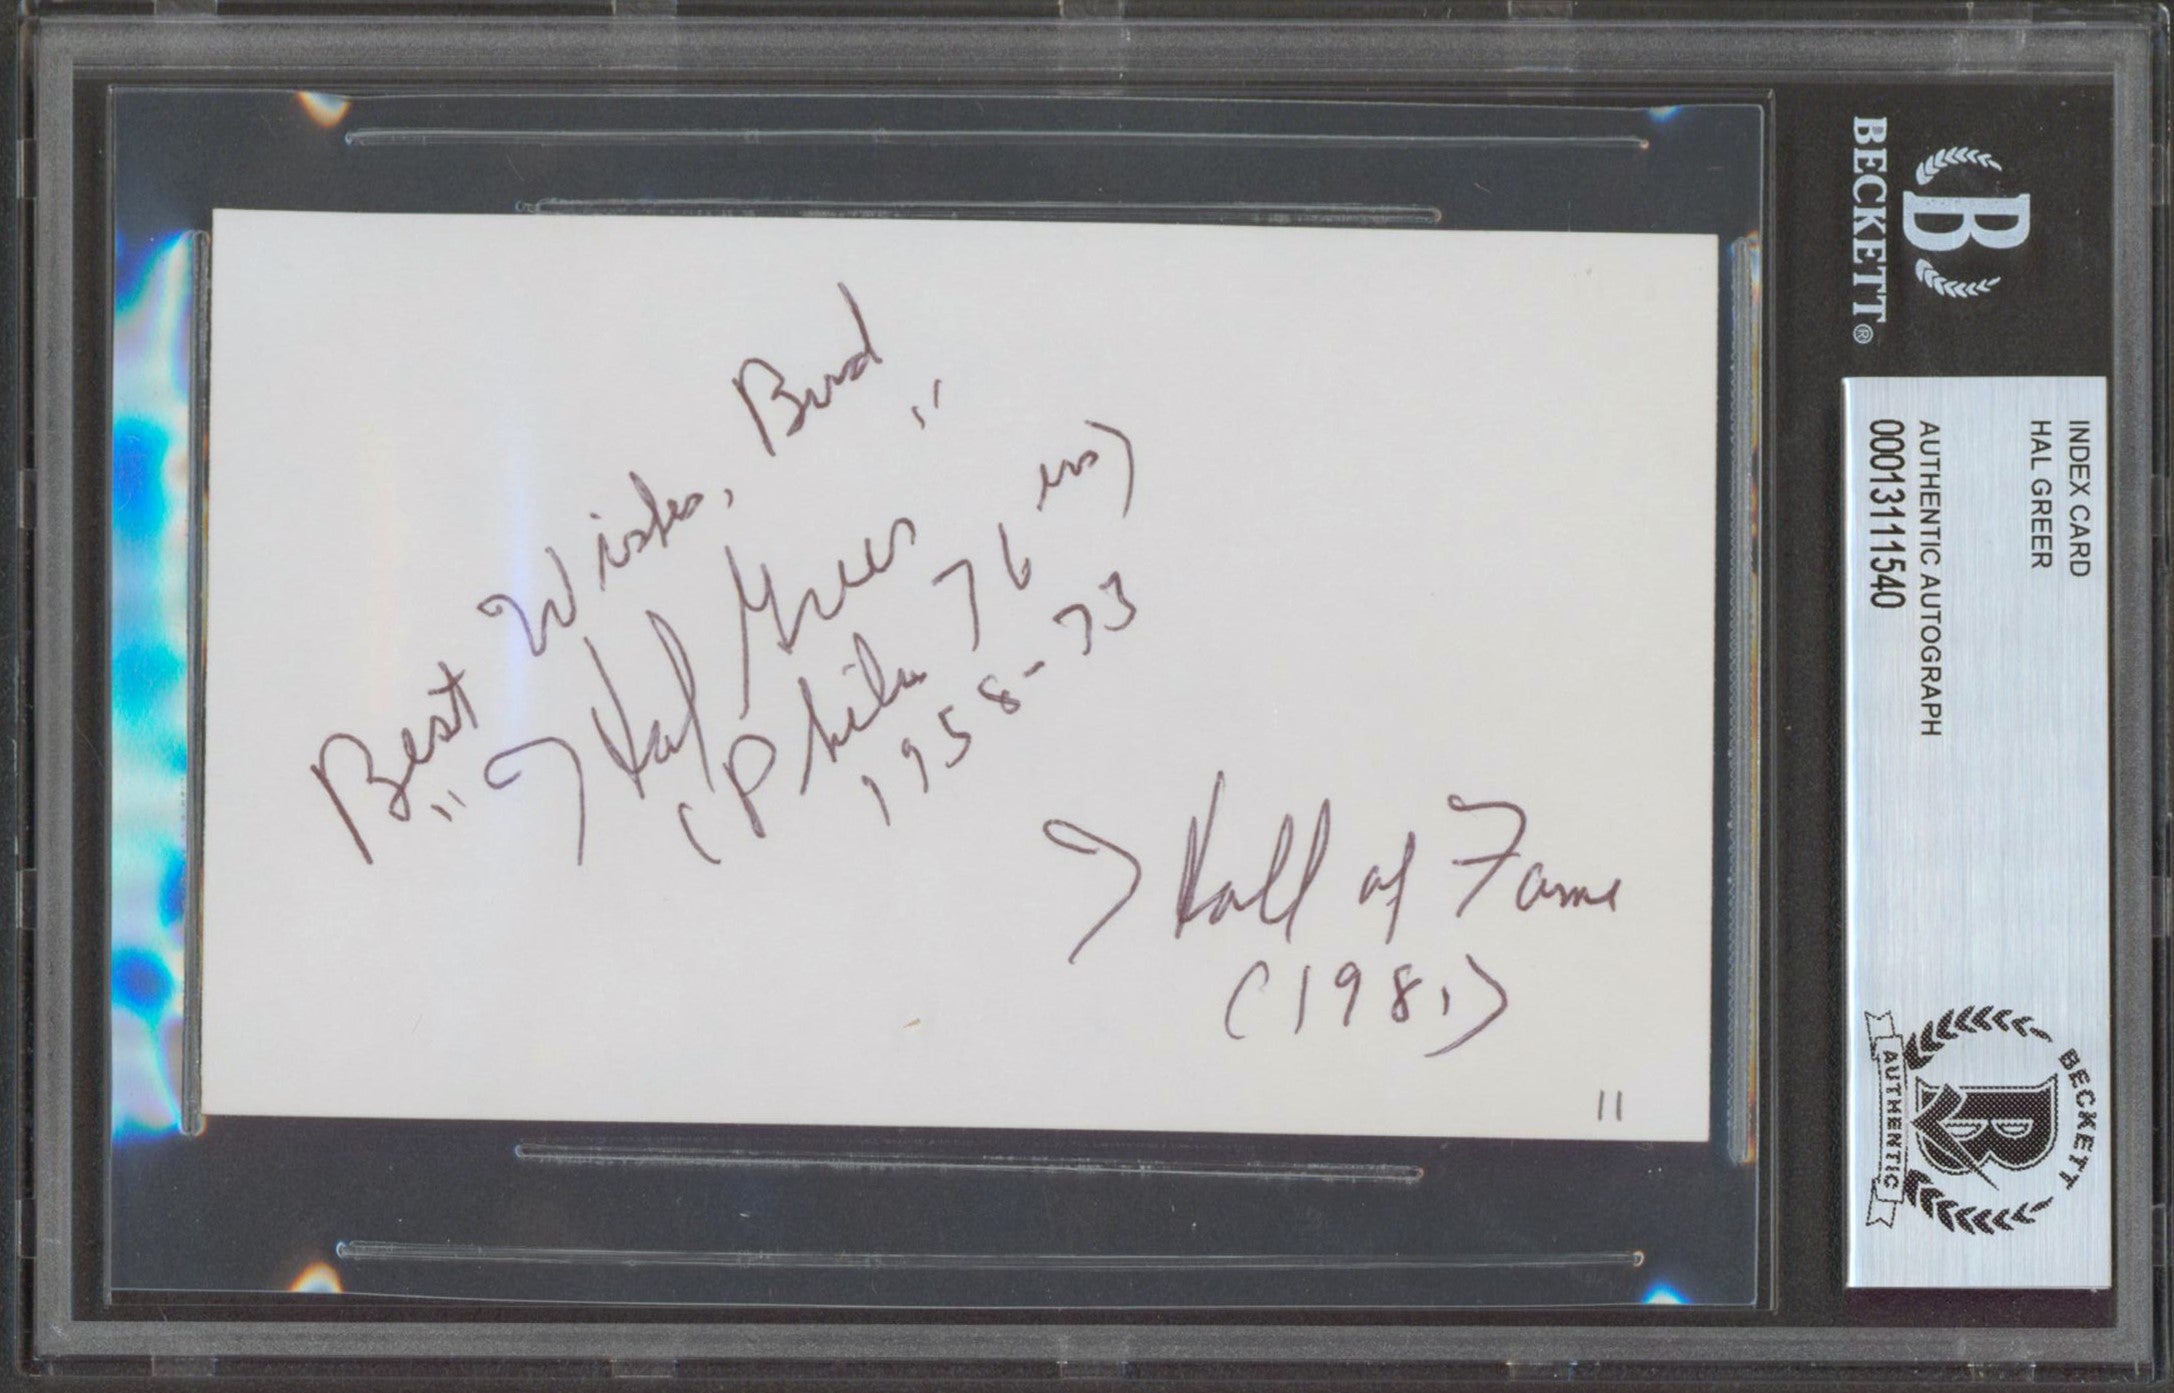 Best Wishes, Bud
" Hal Greer "
(Phila 76ers)
1958-73
Hall of Fame
(1981)
11
BECKETT®
B
INDEX CARD
HAL GREER
AUTHENTIC AUTOGRAPH
0001311540
BECKETT
B
AUTHENTIC